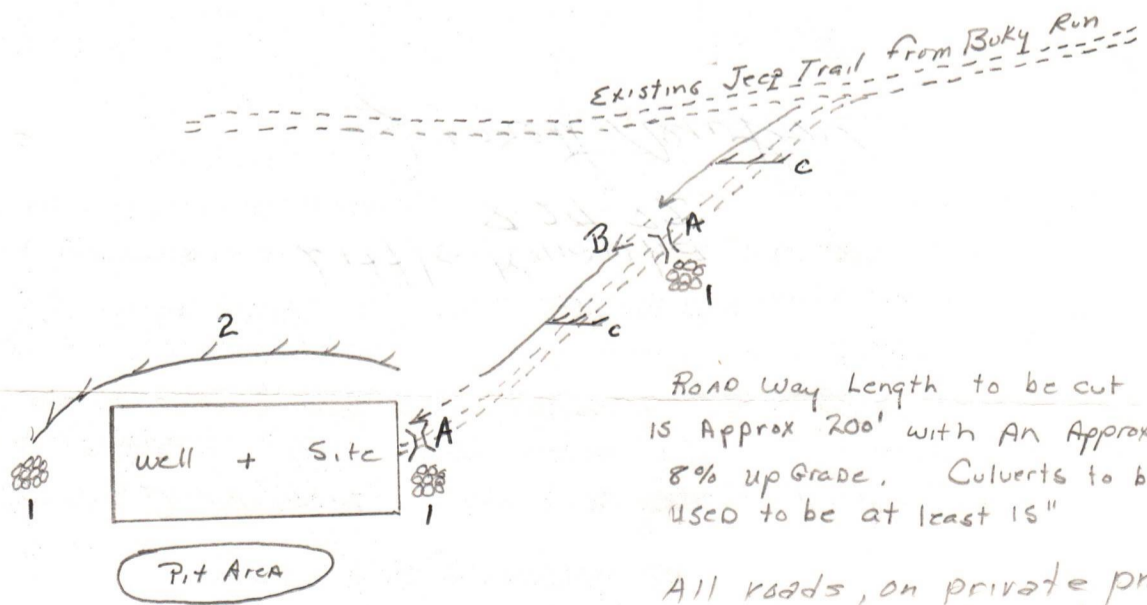 Existing Jeep Trail from Buky Run
c
A
B
1
c
2
A
Well + Site
1
1
Pit Area
Road Way Length to be cut
is Approx 200' with An Approx
8% up Grade. Culverts to b
used to be at least 15"
All roads, on private pr